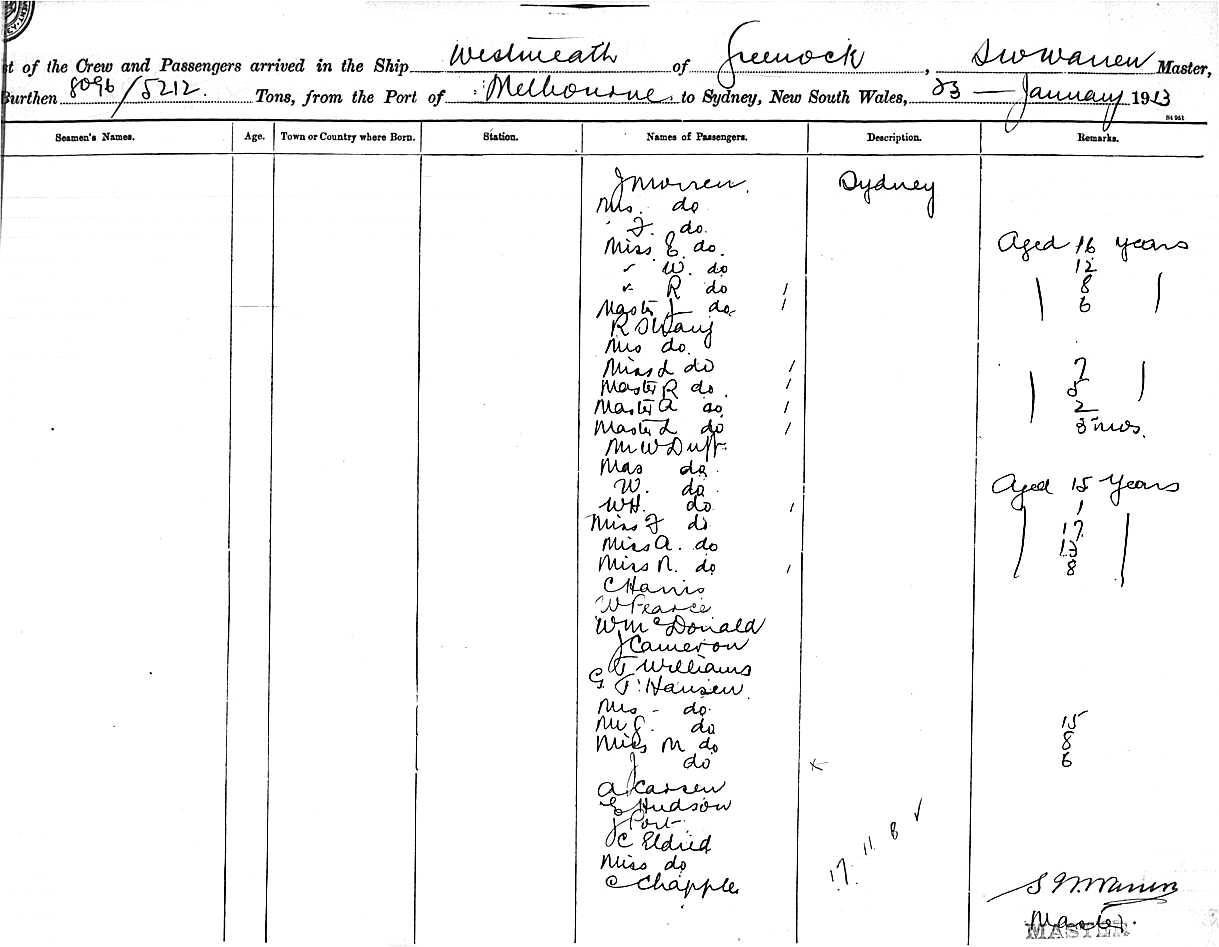 t of the Crew and Passengers arrived in the Ship Westmeath of Greenock, S W Warren Master,
Burthen 8096/5212. Tons, from the Port of Melbourne to Sydney, New South Wales, 23 — January 1913
Seamen's Names. Age. Town or Country where Born. Station. Names of Passengers. Description. Remarks.
Sydney
Mrs. do
" F. do.
Miss E do. Aged 16 years
" W. do 12
" R do / 8
Master J do. / 6
Mrs do.
Miss L do / 7
Master R do. / 5
Master A do. / 2
Master L do / 8 mos.
M W Duff
do.
W. do. Aged 15 Years
WH. do. / 1
Miss F do 17
Miss A. do
Miss N. do / 8
C Harris
W Pearce
W McDonald
J Cameron
T Williams
G T. Hansen
Mrs - do.
do 15
Miss M do 8
J do x 6
A Larsen
E Hudson
J Port
C Eldred
Miss do
C Chapple
17. 11 8 ✓
S W Warren
Master.
MASTER